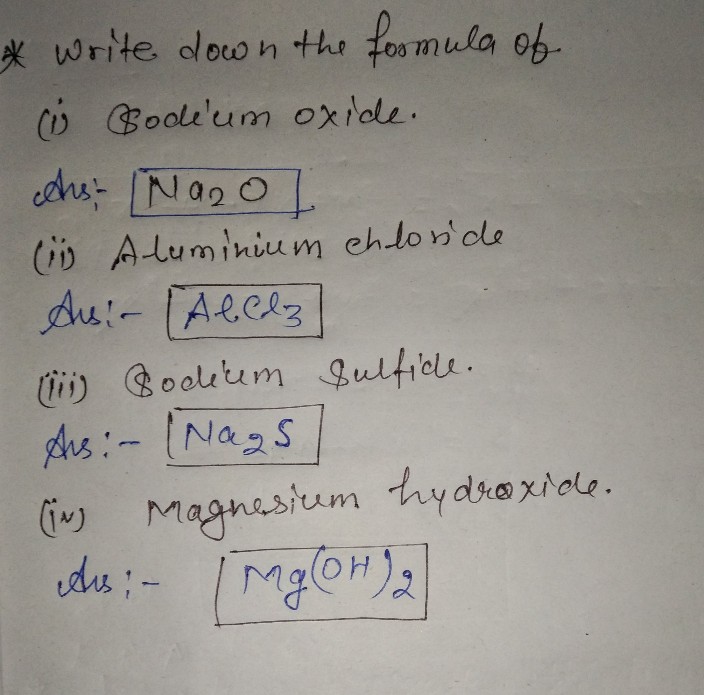 * Write down the formula of
(i) Sodium oxide.
Ans:- Na2O
(ii) Aluminium chloride
Ans:- AlCl3
(iii) Sodium Sulfide.
Ans:- Na2S
(iv) Magnesium hydroxide.
Ans:- Mg(OH)2